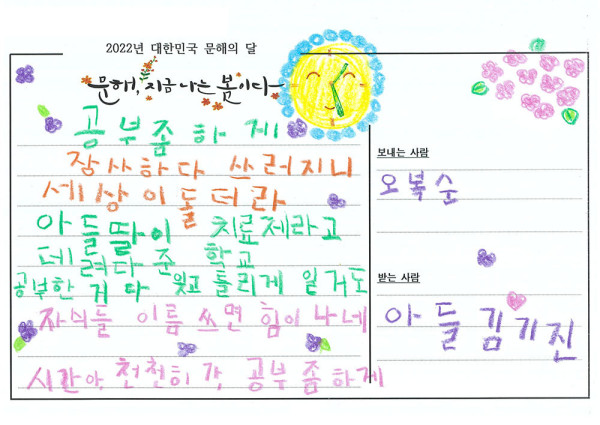 2022년 대한민국 문해의 달
문해, 지금 나는 봄이다
공부좀하게
장사하다 쓰러지니
세상이 돌더라
아들딸이 치료제라고
데려다 준 학교
공부한 거 다 잊고 틀리게 읽거도
자식들 이름 쓰면 힘이 나네
시간아, 천천히 가, 공부 좀 하게
보내는 사람
오복순
받는 사람
아들 김기진